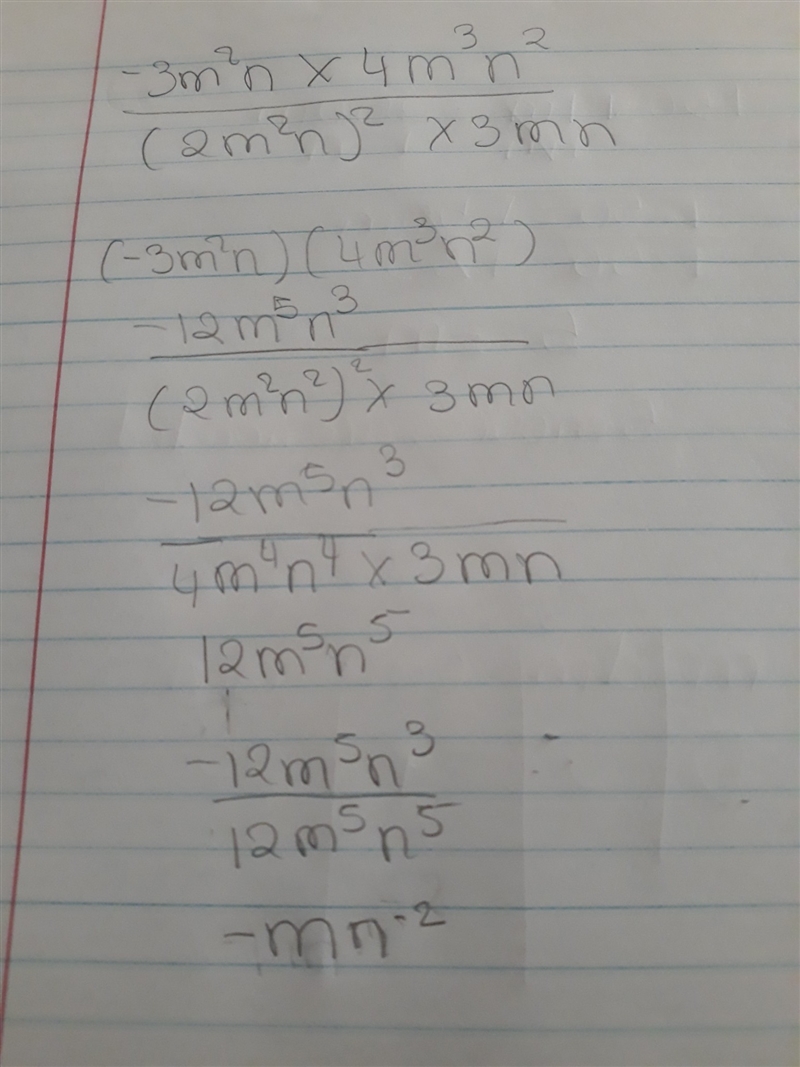 -3m²n × 4m³n²
(2m²n)² × 3mn
(-3m²n)(4m³n²)
-12m⁵n³
(2m²n²)² × 3mn
-12m⁵n³
4m⁴n⁴ × 3mn
12m⁵n⁵
-12m⁵n³
12m⁵n⁵
-mn⁻²